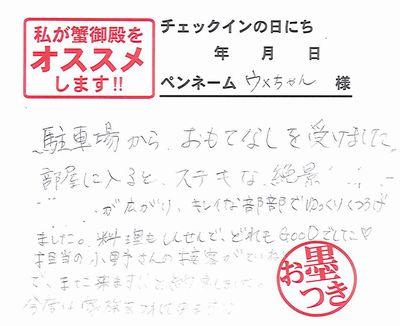 私が蟹御殿を
オススメ
します!!
チェックインの日にち
年 月 日
ペンネーム ウメちゃん 様
駐車場から、おもてなしを受けました。
部屋に入ると、ステキな絶景
が広がり、キレイな部部でゆっくりくつろぎ
ました。料理もしんせんで、どれもGooDでした♡
担当の小野さんの接客がていねい
で、また来ますと
今度は家族を
お墨つき